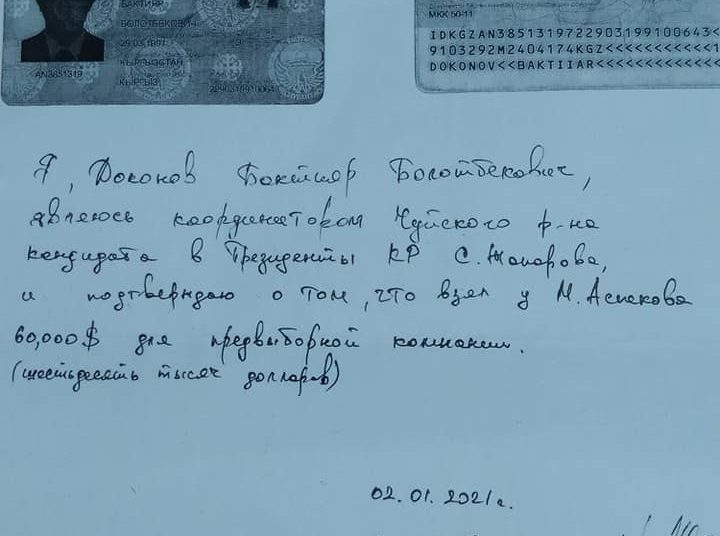 БАКТИЯР
БОЛОТБЕКОВИЧ
29.03.1991
КЫРГЫЗСТАН
КЫРГЫЗ
AN3851319
22903199100643
МКК 50-11
IDKGZAN3851319722903199100643<
9103292M2404174KGZ<<<<<<<<<<<1
DOKONOV<<BAKTIIAR<<<<<<<<<<<<<
Я, Доконов Бактияр Болотбекович,
являюсь координатором Чуйского р-на
кандидата в Президенты КР С. Жапарова,
и подтверждаю о том, что взял у М. Аспекова
60,000$ для предвыборной компании.
(шестьдесят тысяч долларов)
02.01.2021г.